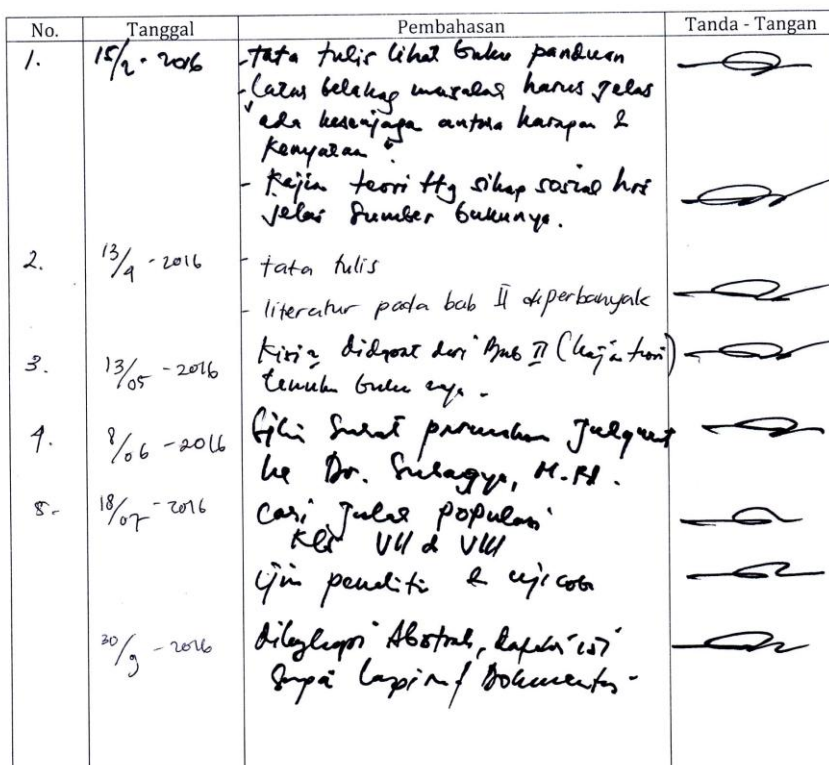 No. Tanggal Pembahasan Tanda - Tangan
1. 15/2 - 2016 - tata tulis lihat buku panduan
- latar belakag masalah harus jelas
"ada kesenjaga antara harapan &
kenyataan".
- Kajian teori ttg sikap sosial hrs
jelas sumber bukunya.
2. 13/4 - 2016 - tata tulis
- literatur pada bab II diperbanyak
3. 13/05 - 2016 Kisi2 didapat dari Bab II (kajian teori)
buku
4. 8/06 - 2016 surat Judgment
ke Dr. M.Pd.
5. 18/07 - 2016 cari populasi
Kls VII & VIII
ijin & uji coba
30/9 - 2016 dilengkapi Abstrak, daftar isi